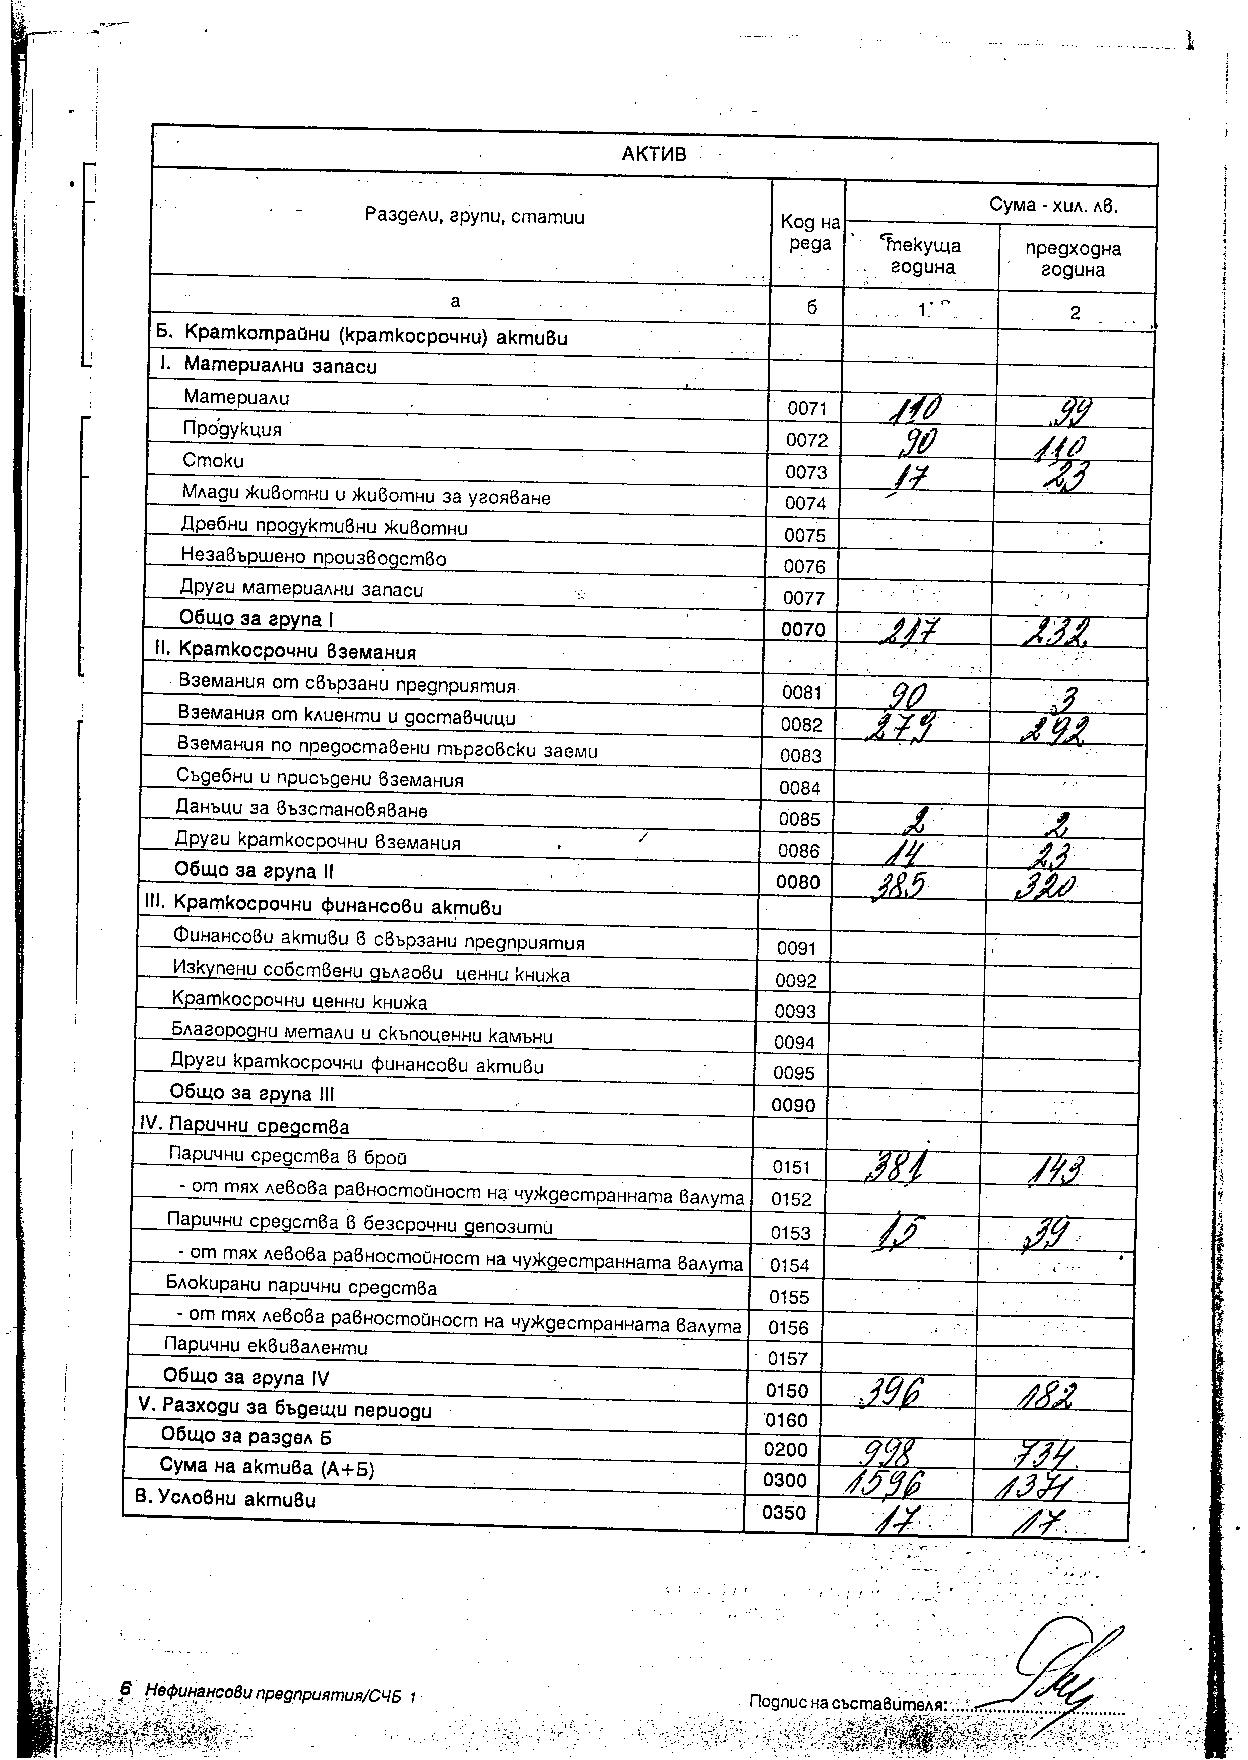 АКТИВ
Раздели, групи, статии
Код на реда
Сума - хил. лв.
текуща година
предходна година
а б 1 2
Б. Краткотрайни (краткосрочни) активи
I. Материални запаси
Материали 0071 110 99
Продукция 0072 90 110
Стоки 0073 17 23
Млади животни и животни за угояване 0074
Дребни продуктивни животни 0075
Незавършено производство 0076
Други материални запаси 0077
Общо за група I 0070 217 232
II. Краткосрочни вземания
Вземания от свързани предприятия 0081 90 3
Вземания от клиенти и доставчици 0082 279 292
Вземания по предоставени търговски заеми 0083
Съдебни и присъдени вземания 0084
Данъци за възстановяване 0085 2 2
Други краткосрочни вземания 0086 14 23
Общо за група II 0080 385 320
III. Краткосрочни финансови активи
Финансови активи в свързани предприятия 0091
Изкупени собствени дългови ценни книжа 0092
Краткосрочни ценни книжа 0093
Благородни метали и скъпоценни камъни 0094
Други краткосрочни финансови активи 0095
Общо за група III 0090
IV. Парични средства
Парични средства в брой 0151 381 143
- от тях левова равностойност на чуждестранната валута 0152
Парични средства в безсрочни депозити 0153 15 39
- от тях левова равностойност на чуждестранната валута 0154
Блокирани парични средства 0155
- от тях левова равностойност на чуждестранната валута 0156
Парични еквиваленти 0157
Общо за група IV 0150 396 182
V. Разходи за бъдещи периоди 0160
Общо за раздел Б 0200 998 734
Сума на актива (А+Б) 0300 1596 1371
В. Условни активи 0350 17 17
6 Нефинансови предприятия/СЧБ 1
Подпис на съставителя: